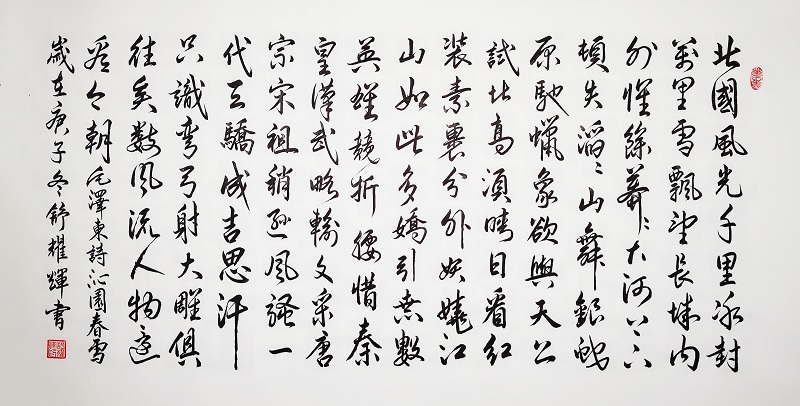 北國風光千里冰封
萬里雪飄望長城內
外惟餘莽〻大河上下
頓失滔〻山舞銀蛇
原馳蠟象欲與天公
試比高須晴日看紅
裝素裹分外妖嬈江
山如此多嬌引無數
英雄競折腰惜秦
皇漢武略輸文采唐
宗宋祖稍遜風騷一
代天驕成吉思汗
只識彎弓射大雕俱
往矣數風流人物還
看今朝 毛澤東詩沁園春雪
歲在庚子冬舒耀輝書